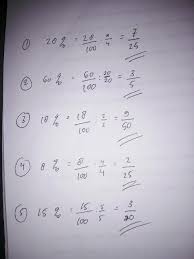 ① 28 % = 28/100 : 4/4 = 7/25
② 60 % = 60/100 : 20/20 = 3/5
③ 18 % = 18/100 : 2/2 = 9/50
④ 8 % = 8/100 : 4/4 = 2/25
⑤ 15 % = 15/100 : 5/5 = 3/20